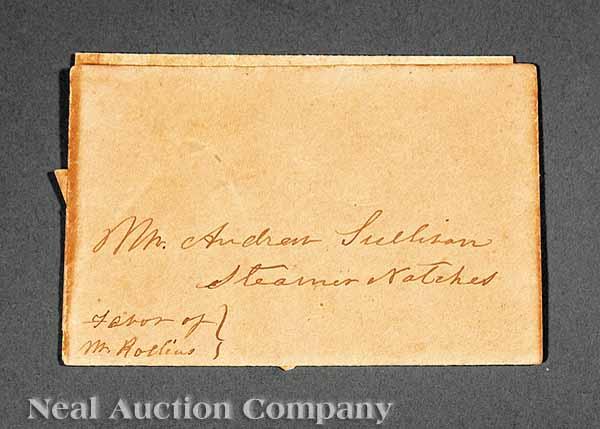 Mr. Andrew Sullivan
Steamer Natches
Favor of
Mr Rollins
Neal Auction Company